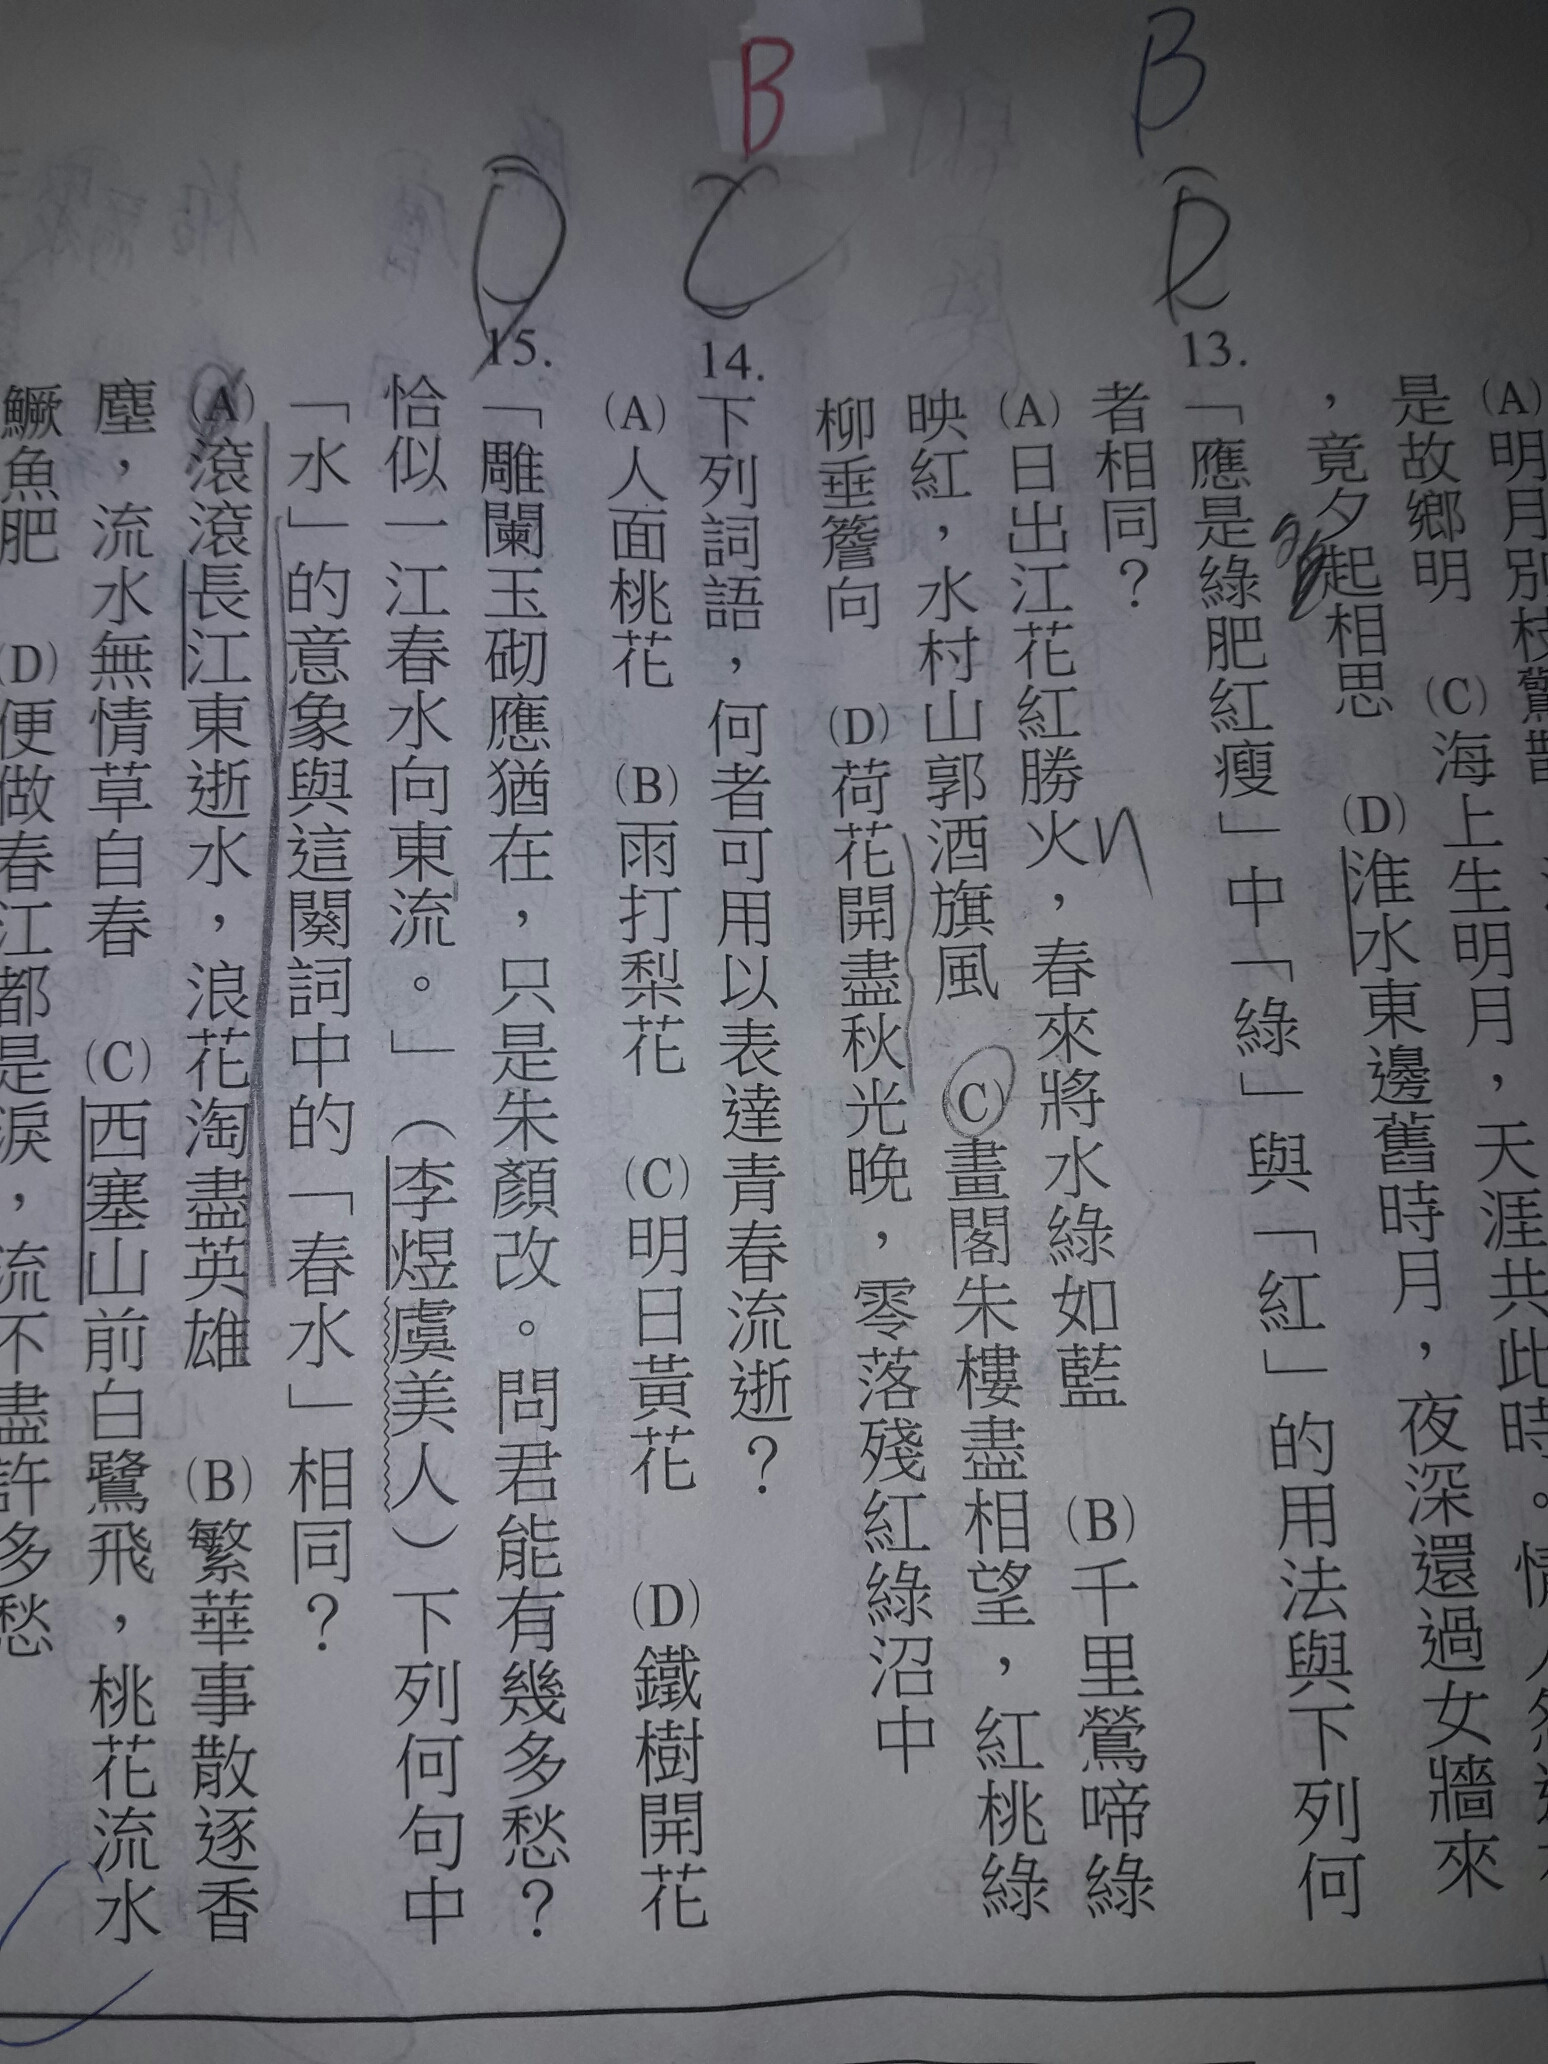 (A)明月別枝驚鵲
是故鄉明 (C)海上生明月，天涯共此時。情人
，竟夕起相思 (D)淮水東邊舊時月，夜深還過女牆來
B
13.「應是綠肥紅瘦」中「綠」與「紅」的用法與下列何
者相同？
(A)日出江花紅勝火，春來將水綠如藍 (B)千里鶯啼綠
映紅，水村山郭酒旗風 (C)畫閣朱樓盡相望，紅桃綠
柳垂簷向 (D)荷花開盡秋光晚，零落殘紅綠沼中
B
C
14.下列詞語，何者可用以表達青春流逝？
(A)人面桃花 (B)雨打梨花 (C)明日黃花 (D)鐵樹開花
D
15.「雕闌玉砌應猶在，只是朱顏改。問君能有幾多愁？
恰似一江春水向東流。」（李煜虞美人）下列何句中
「水」的意象與這闋詞中的「春水」相同？
(A)滾滾長江東逝水，浪花淘盡英雄 (B)繁華事散逐香
塵，流水無情草自春 (C)西塞山前白鷺飛，桃花流水
鱖魚肥 (D)便做春江都是淚，流不盡許多愁